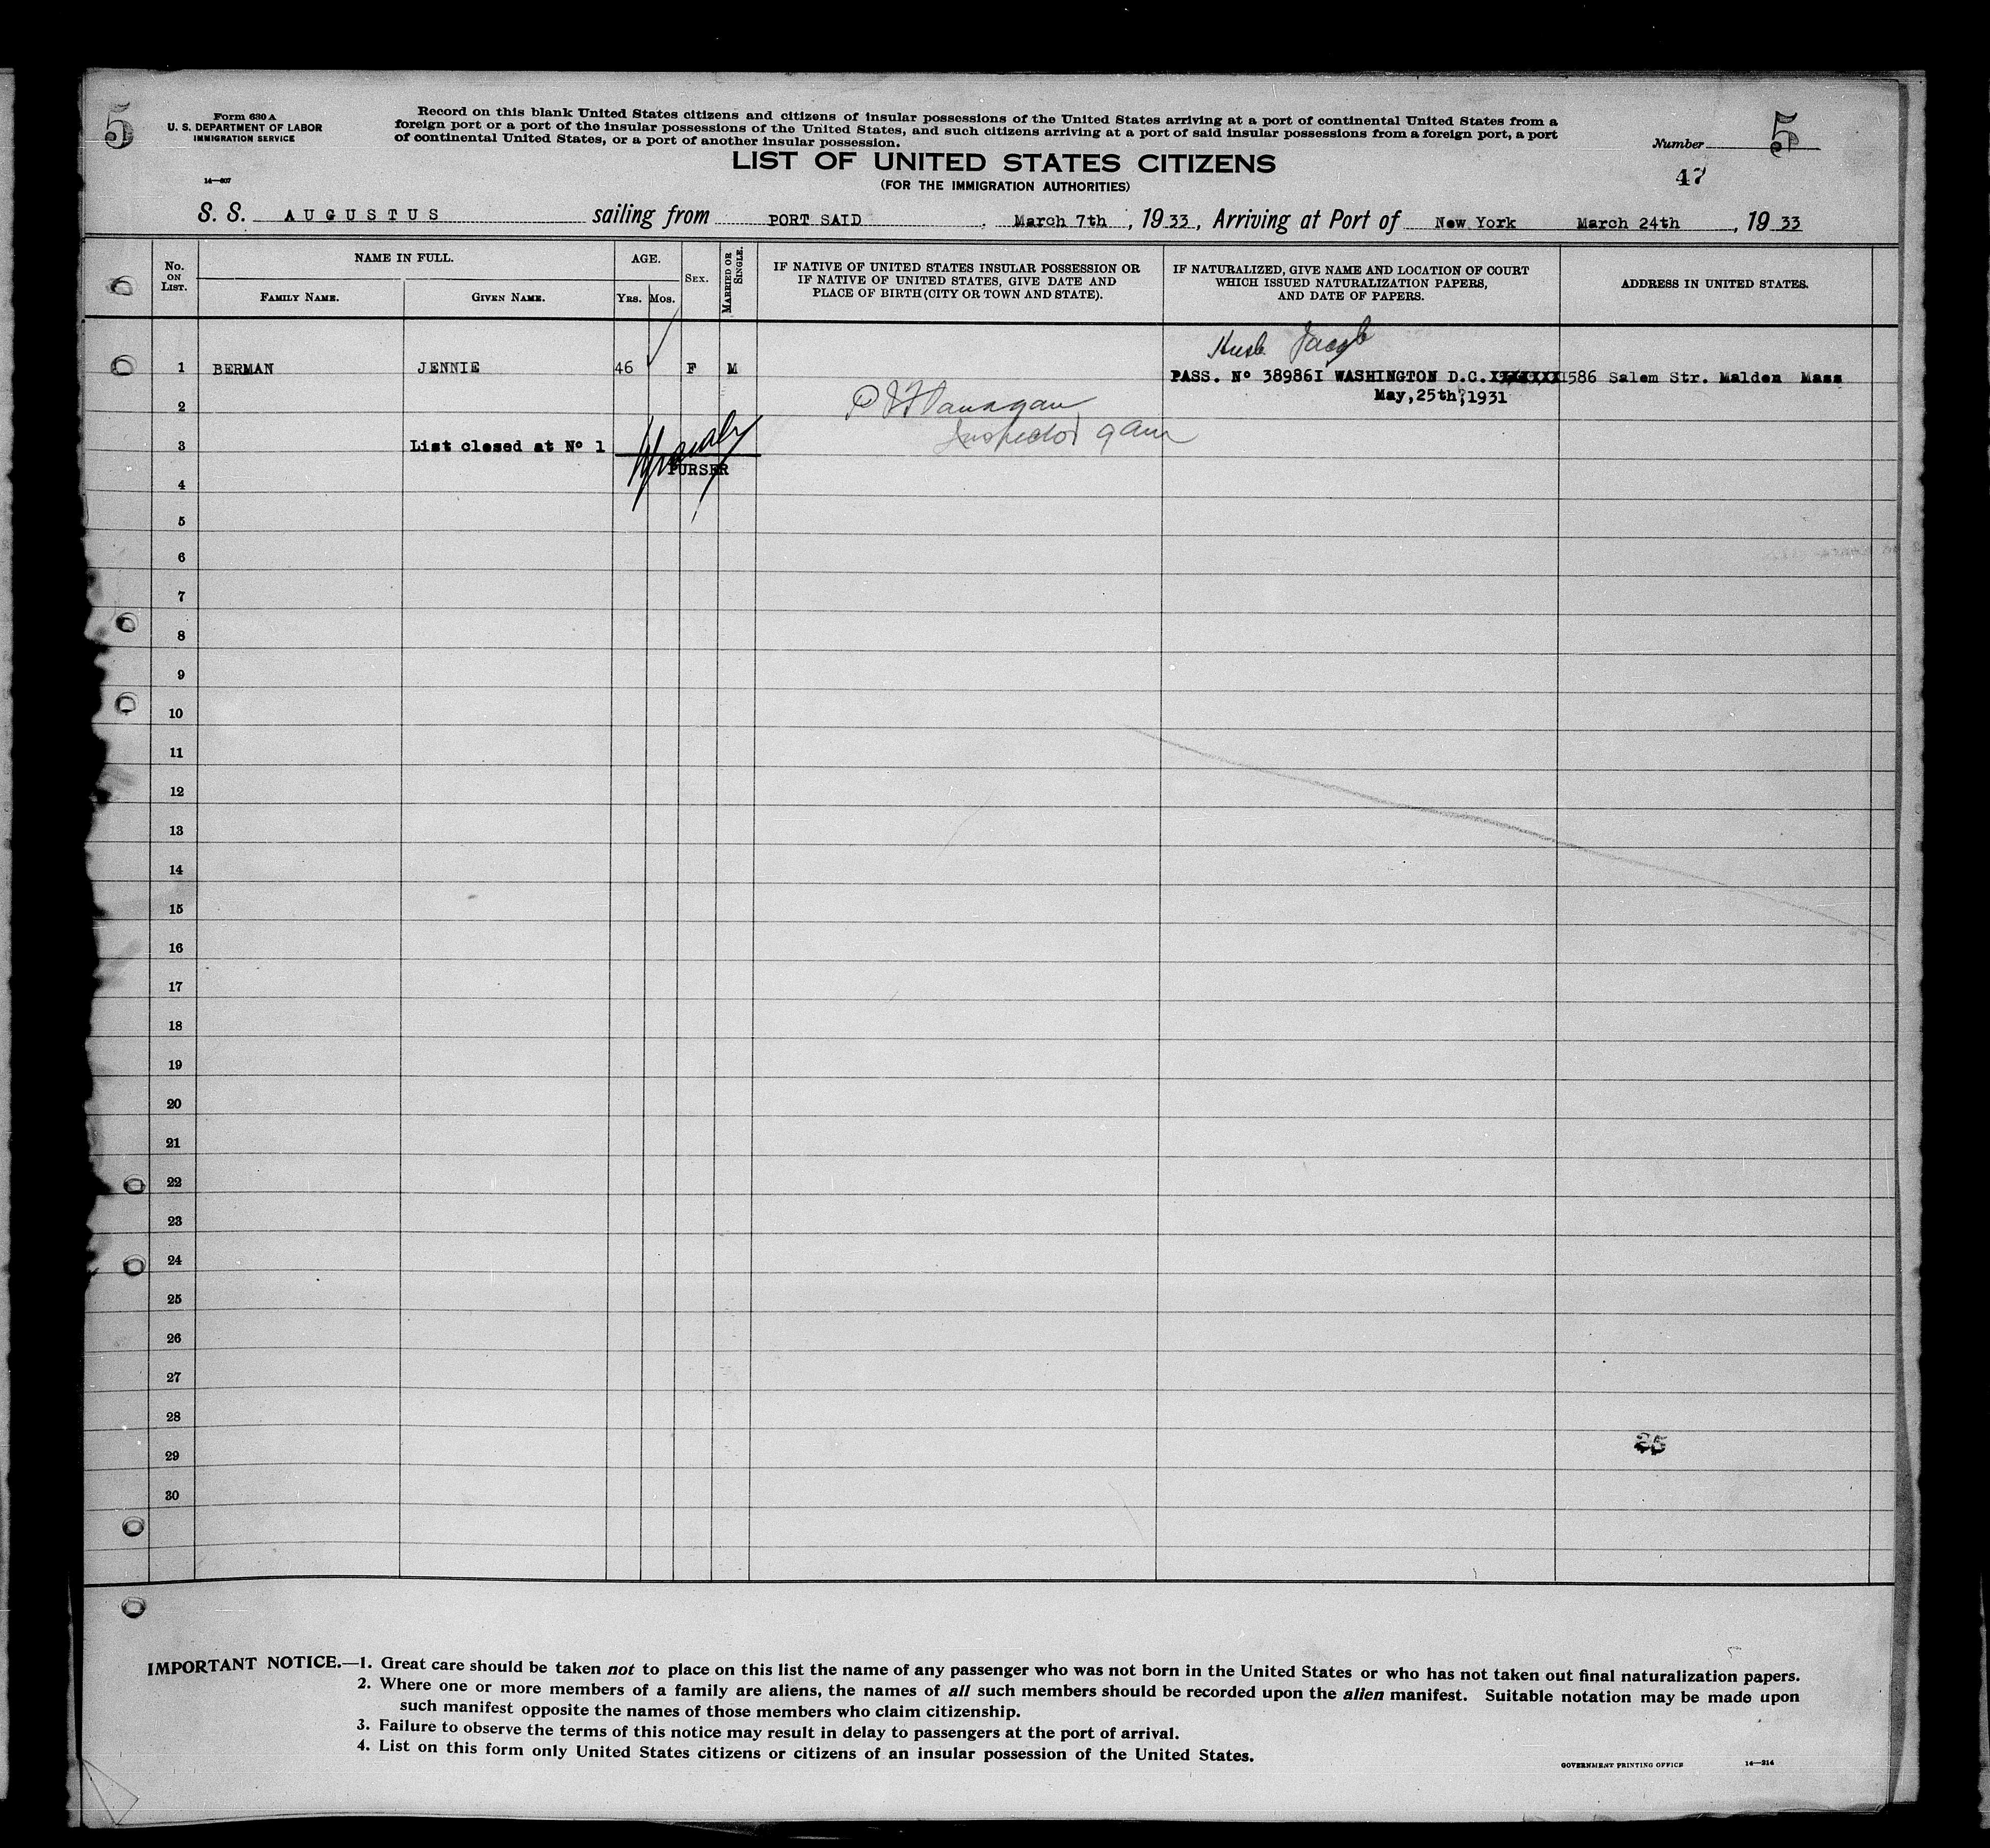 5
Form 630 A
U. S. DEPARTMENT OF LABOR
IMMIGRATION SERVICE
14—607
Record on this blank United States citizens and citizens of insular possessions of the United States arriving at a port of continental United States from a
foreign port or a port of the insular possessions of the United States, and such citizens arriving at a port of said insular possessions from a foreign port, a port
of continental United States, or a port of another insular possession.
Number 5
47
LIST OF UNITED STATES CITIZENS
(FOR THE IMMIGRATION AUTHORITIES)
S. S. AUGUSTUS sailing from PORT SAID, March 7th, 1933, Arriving at Port of New York March 24th, 1933
No. ON LIST.
NAME IN FULL.
FAMILY NAME.
GIVEN NAME.
AGE.
YRS.
MOS.
SEX.
MARRIED OR SINGLE.
IF NATIVE OF UNITED STATES INSULAR POSSESSION OR
IF NATIVE OF UNITED STATES, GIVE DATE AND
PLACE OF BIRTH (CITY OR TOWN AND STATE).
IF NATURALIZED, GIVE NAME AND LOCATION OF COURT
WHICH ISSUED NATURALIZATION PAPERS,
AND DATE OF PAPERS.
ADDRESS IN UNITED STATES.
Husb Jacob
1 BERMAN JENNIE 46 F M PASS. Nº 389861 WASHINGTON D.C. 586 Salem Str. Malden Mass
May,25th,1931
2 Flanagan
Inspector 9 am
3 List closed at Nº 1
PURSER
4
5
6
7
8
9
10
11
12
13
14
15
16
17
18
19
20
21
22
23
24
25
26
27
28
25
29
30
IMPORTANT NOTICE.—1. Great care should be taken not to place on this list the name of any passenger who was not born in the United States or who has not taken out final naturalization papers.
2. Where one or more members of a family are aliens, the names of all such members should be recorded upon the alien manifest. Suitable notation may be made upon
such manifest opposite the names of those members who claim citizenship.
3. Failure to observe the terms of this notice may result in delay to passengers at the port of arrival.
4. List on this form only United States citizens or citizens of an insular possession of the United States.
GOVERNMENT PRINTING OFFICE 14—214